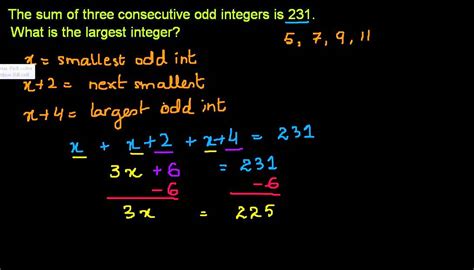 The sum of three consecutive odd integers is 231.
What is the largest integer?
5, 7, 9, 11
x = smallest odd int
x+2 = next smallest
x+4 = largest odd int
x + x+2 + x+4 = 231
3x +6 = 231
-6 -6
3x = 225